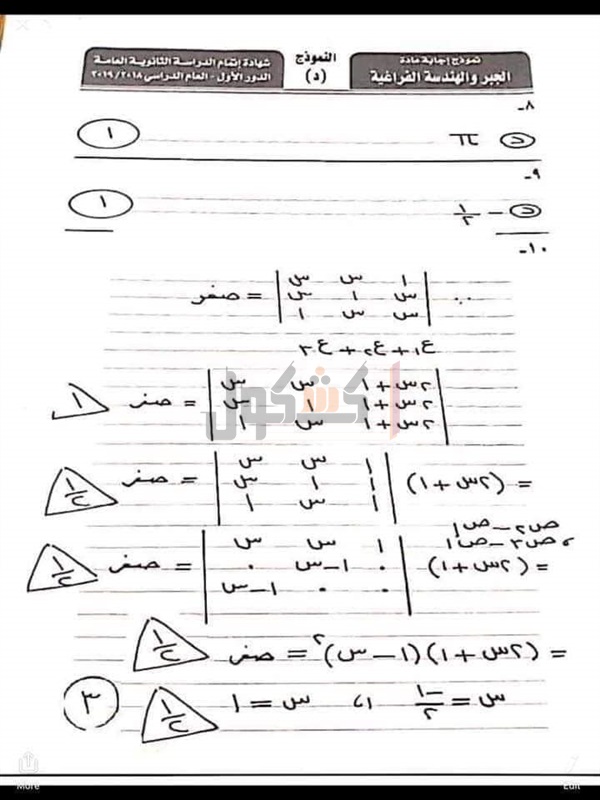 نموذج إجابة مادة
الجبر والهندسة الفراغية
النموذج
(د)
شهادة إتمام الدراسة الثانوية العامة
الدور الأول - العام الدراسي ٢٠١٨/٢٠١٩
٨-
د π ١
٩-
د - ١/٢ ١
١٠-
∵ | ١ س س | = صفر
| س ١ س |
| س س ١ |
ع١ + ع٢ + ع٣
| ٢س+١ س س | = صفر ١
| ٢س+١ ١ س |
| ٢س+١ س ١ |
= (٢س+١) | ١ س س | = صفر ١/٢
| ١ ١ س |
| ١ س ١ |
ص٢ - ص١
، ص٣ - ص١
= (٢س+١) | ١ س س | = صفر ١/٢
| ٠ ١-س ٠ |
| ٠ ٠ ١-س |
= (٢س+١)(١-س)٢ = صفر ١/٢
س = -١/٢ ، س = ١ ١/٢ ٣
كشكول
More
Edit